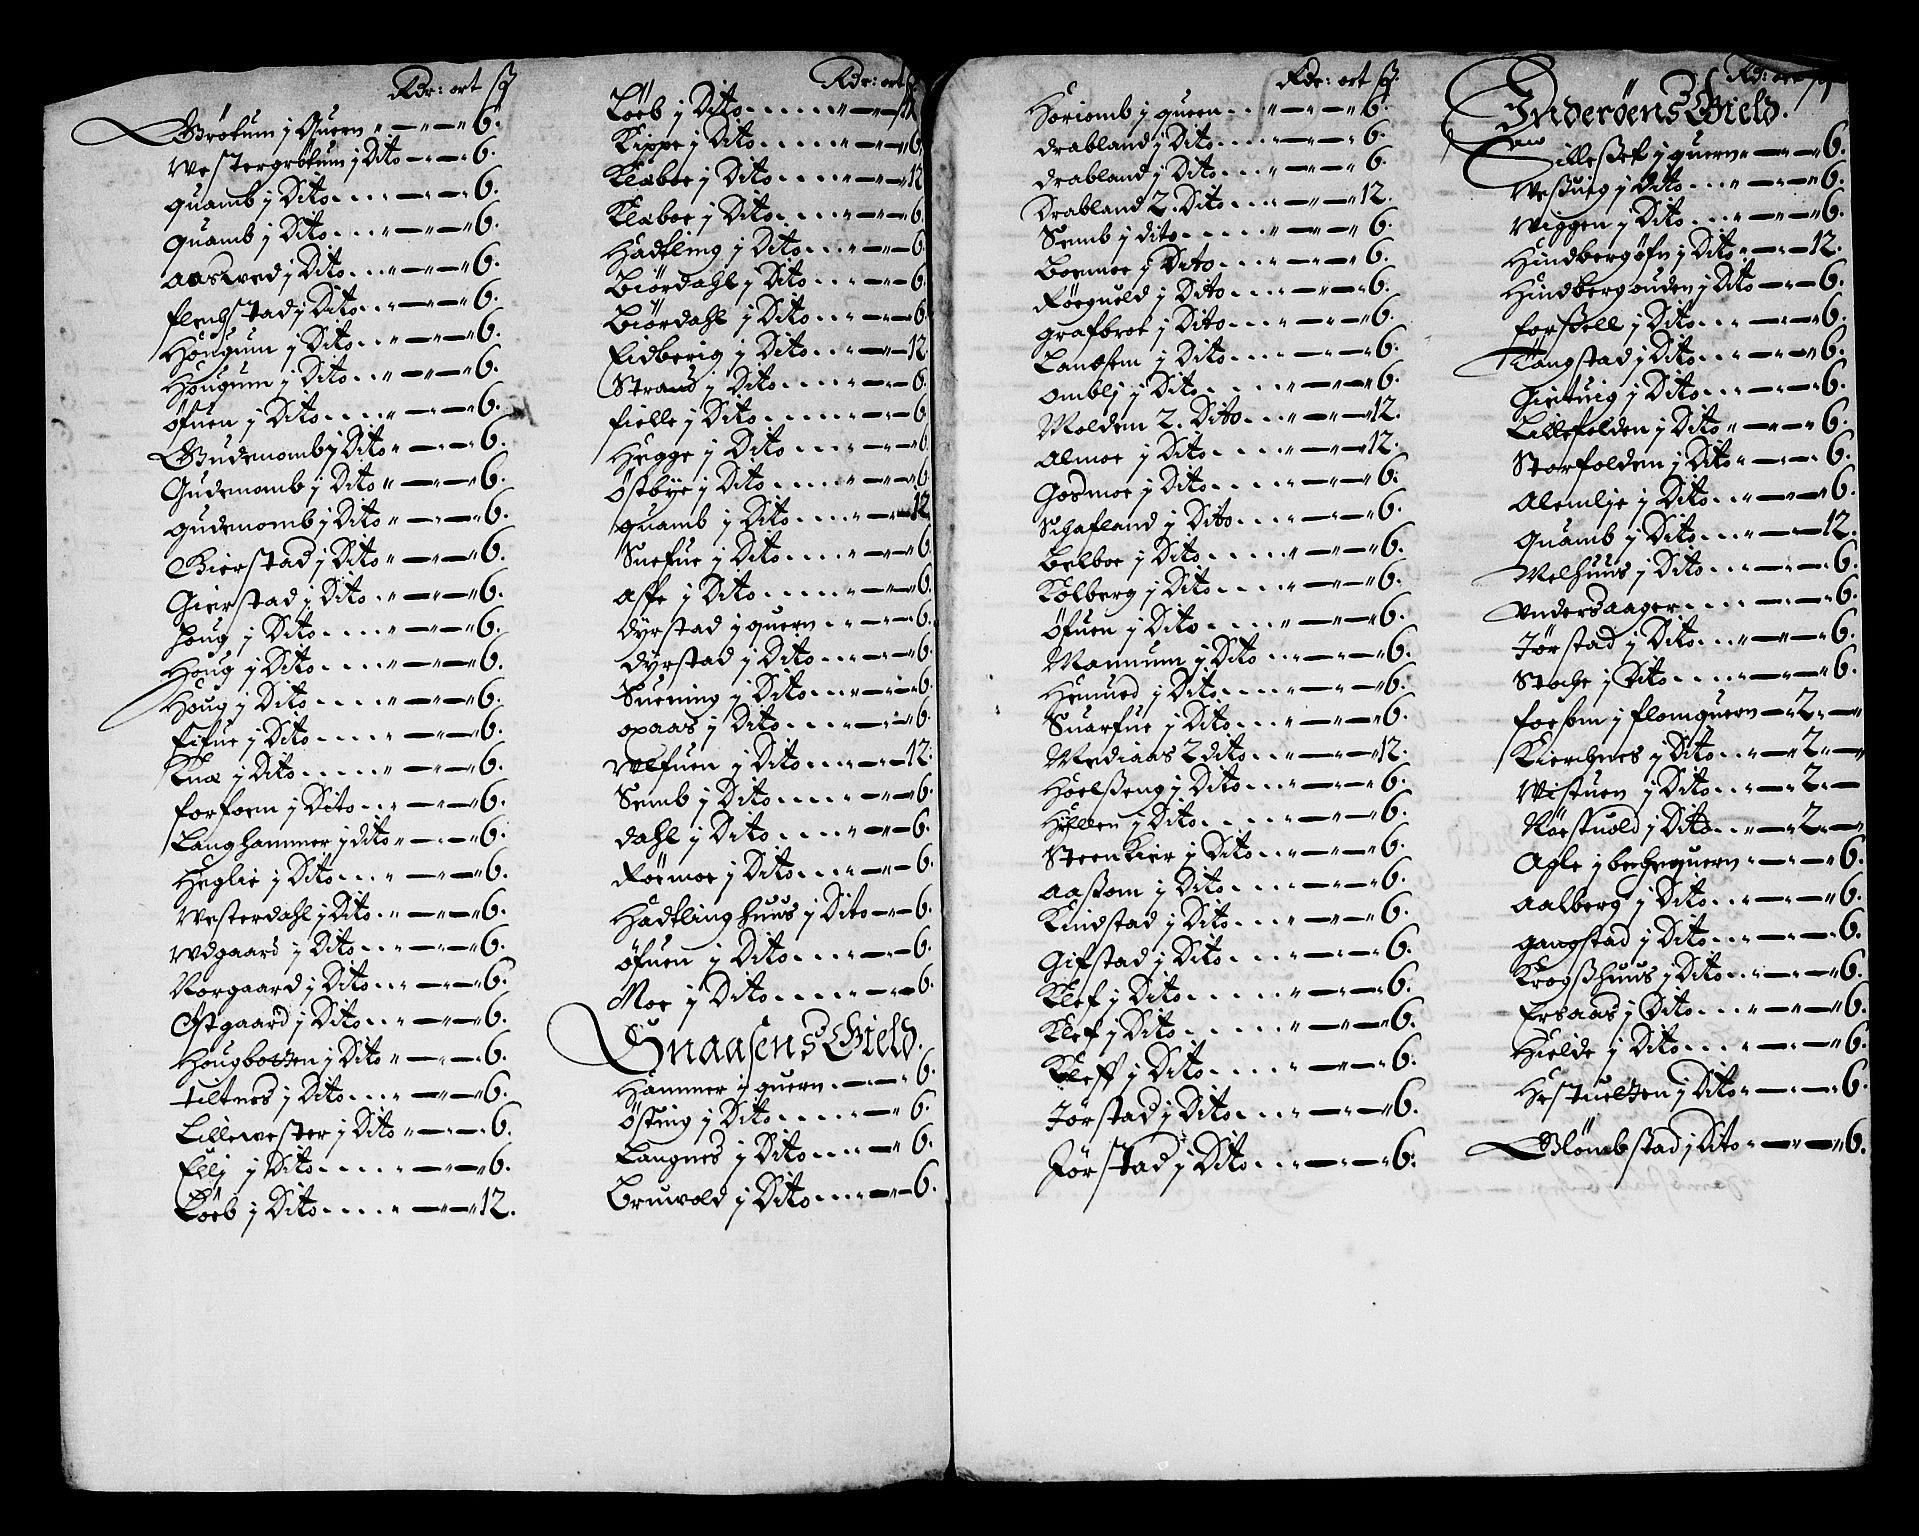 Rdr: ort ß
Grötum j Quern „ — „ — „ 6.
Westergrötum j Dito — „ — „ 6.
Quamb j Dito — „ — „ 6.
Quamb j Dito „ — „ — „ 6.
Aasved j Dito „ — „ — „ 6.
flenstad j Dito „ — „ — „ 6.
Hougum j Dito „ — „ — „ 6.
Hougum j Dito „ — „ — „ 6.
Øfuen j Dito „ — „ — „ 6.
Gudemomb j Dito „ — „ — „ 6.
Gudemomb j Dito „ — „ — „ 6.
gudemomb j Dito „ — „ — „ 6.
Gierstad j Dito „ — „ — „ 6.
Gierstad j Dito „ — „ — „ 6.
houg j Dito „ — „ — „ 6.
Houg j Dito „ — „ — „ 6.
Houg j Dito „ — „ — „ 6.
fifue j Dito „ — „ — „ 6.
Knæ j Dito „ — „ — „ 6.
forfoem j Dito „ — „ — „ 6.
Langhammer j dito „ — „ — „ 6.
Heglie j Dito „ — „ — „ 6.
Westerdahl j Dito „ — „ — „ 6.
Wdgaard j Dito „ — „ — „ 6.
Norgaard j Dito „ — „ — „ 6.
Østgaard j Dito „ — „ — „ 6.
Hougbotten j Dito „ — „ — „ 6.
tiltnes j Dito „ — „ — „ 6.
Lillewester j Dito „ — „ — „ 6.
Ellj j Dito „ — „ — „ 6.
Löeb j Dito „ — „ — „ 12.
Rdr: ort ß
Löeb j Dito „ — „ —
Kippe j Dito „ — „ — 6
Klæboe j Dito „ — „ — 12
Klæboe j Dito „ — „ — 6.
Hadtling j Dito „ — „ — 6
Biördahl j Dito „ — „ — 6.
Biördahl j Dito „ — „ — 6.
Eidberig j Dito „ — „ — 12
Strand j Dito „ — „ — 6.
fielle j Dito „ — „ — 6
Hegge j Dito „ — „ — 6
Östbye j Dito „ — „ — 6
quamb j Dito „ — „ — 12
Suefue j Dito „ — „ — 6.
Asse j Dito „ — „ — 6.
dyrstad j quern „ — „ — 6.
Dyrstad j Dito „ — „ — 6.
Suening j Dito „ — „ — 6.
opaas j Dito „ — „ — 6.
Wlfuen j Dito „ — „ — 12.
Semb j Dito „ — „ — 6.
dahl j Dito „ — „ — 6.
Röemoe j Dito „ — „ — 6.
Hadtlinghuus j Dito — „ — 6.
Øfuen j Dito „ — „ — 6.
Moe j Dito „ — „ — 6.
Snaasens Gield.
Hammer j quern „ — „ — 6.
Östing j Dito „ — „ — 6.
Langnes j Dito „ — „ — 6.
Bruvold j Dito „ — „ — 6.
Rdr: ort ß
Horiomb j quern „ — „ — „ 6.
drabland j Dito „ — „ — „ 6.
drabland j Dito „ — „ — „ 6.
Drabland 2. Dito „ — „ — „ 12.
Semb j dito „ — „ — „ 6.
Boemoe j Dito „ — „ — „ 6.
Röegueld j Dito „ — „ — „ 6.
grafbroe j Dito „ — „ — „ 6.
j Dito „ — „ — „ 6.
omblj j Dito „ — „ — „ 6.
Molden 2. Dito „ — „ — „ 12.
Almoe j Dito „ — „ — „ 12.
Gosmoe j Dito „ — „ — „ 6.
Schafland j Dito „ — „ — „ 6.
Belboe j Dito „ — „ — „ 6.
Kolberg j Dito „ — „ — „ 6.
Øfuen j Dito „ — „ — „ 6.
Mannum j Dito „ — „ — „ 6.
Hemued j Dito „ — „ — „ 6.
Suarfue j Dito „ — „ — „ 6.
Mediaas 2 dito „ — „ — „ 12.
Hoelßeng j Dito „ — „ — „ 6.
Hylden j Dito „ — „ — „ 6.
Steenkier j Dito „ — „ — „ 6.
Aaßom j Dito „ — „ — „ 6.
Kindstad j Dito „ — „ — „ 6.
Gifstad j Dito „ — „ — „ 6.
Klef j Dito „ — „ — „ 6.
Klef j Dito „ — „ — „ 6.
Kleff j Dito „ — „ — „ 6.
Jorstad j Dito „ — „ — „ 6.
Jörstad j Dito „ — „ — „ 6.
Rdr: ort ß
Inderöens Gield.
Silleßet j quern „ — „ — „ 6.
Weßuig j Dito „ — „ — „ 6.
Wiggen j Dito „ — „ — „ 6.
Hindbergöfn j Dito „ — „ — 12.
Hindbergouden j Dito — „ — „ 6.
forßell j Dito „ — „ — „ 6.
Rangstad j Dito „ — „ — „ 6.
Gietuig j Dito „ — „ — „ 6.
Lillefolden j Dito „ — „ — „ 6.
Storfolden j Dito „ — „ — 6.
Alemlje j Dito „ — „ — „ 6.
Quamb j Dito „ — „ — 12.
Melhuus j Dito „ — „ — 6.
Undersaager „ — „ — 6.
Jörstad j Dito „ — „ — „ 6.
Stoche j Dito „ — „ — „ 6.
j flomquern — 2. — „
Kierchnes j Dito „ — „ 2 — „ —
Wistuen j Dito „ — „ 2. — —
Röestuold j Dito „ — „ 2. — „
Agle j bechequern „ — „ — „ 6.
Aalberg j Dito „ — „ — „ 6.
gangstad j Dito „ — „ — 6.
Krogßhuus j Dito „ — „ — „ 6.
Ersaas j Dito „ — „ — „ 6.
Hielde j Dito „ — „ — „ 6.
Hestuelten j Dito „ — „ — „ 6.
Glömbstad j Dito „ — „ — „ 6.